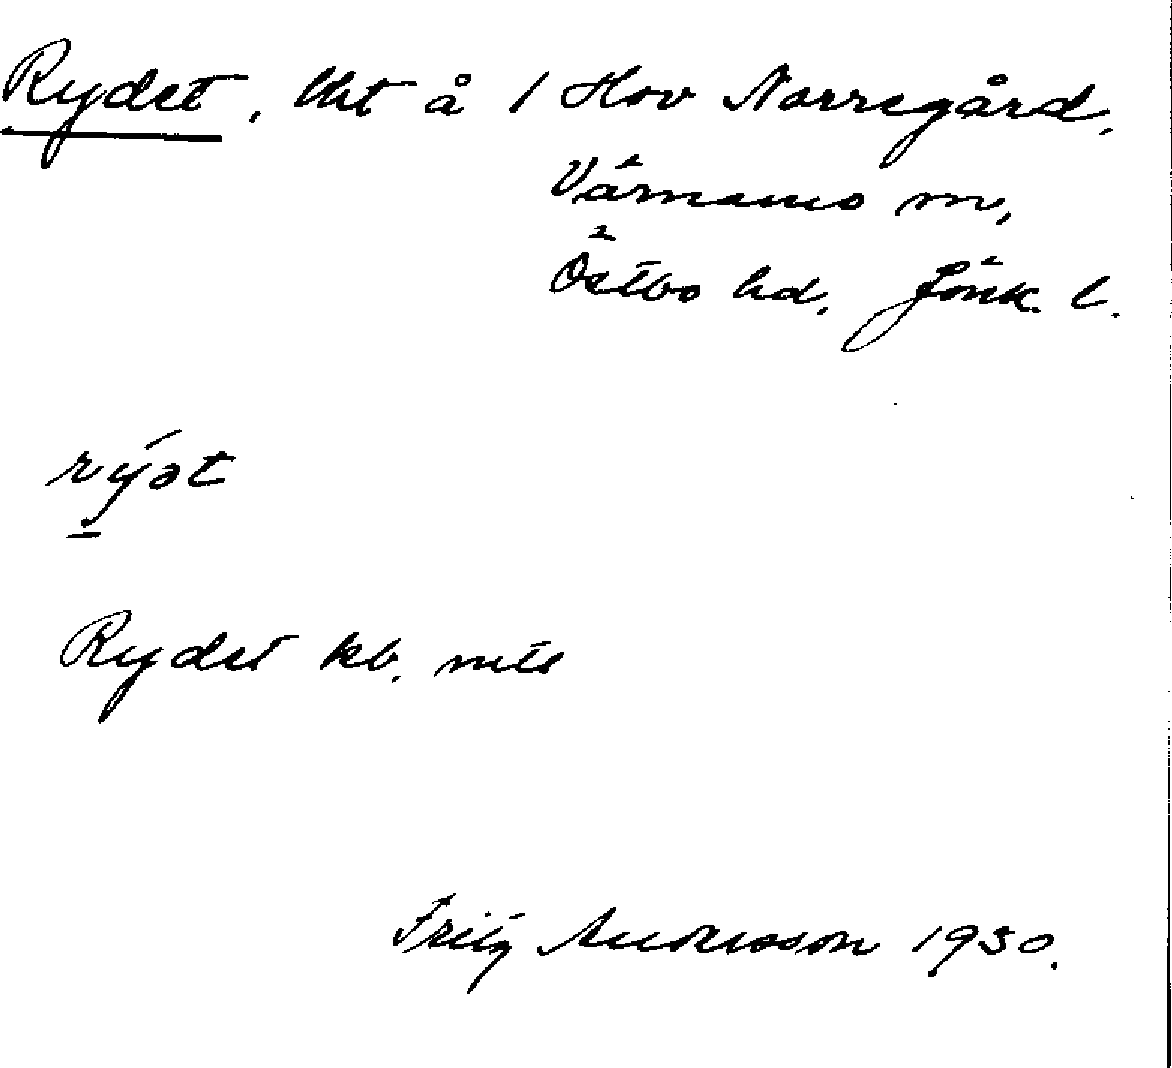 Rydet, lht å 1 Hov Norregård,
Värnamo sn,
Östbo hd, Jönk. l.
rýət
Rydet kb.
Fritz Andersson 1930.